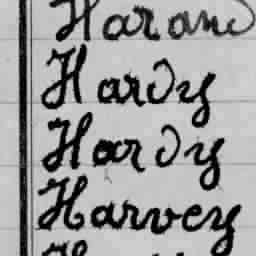 Harand
Hardy
Hardy
Harvey